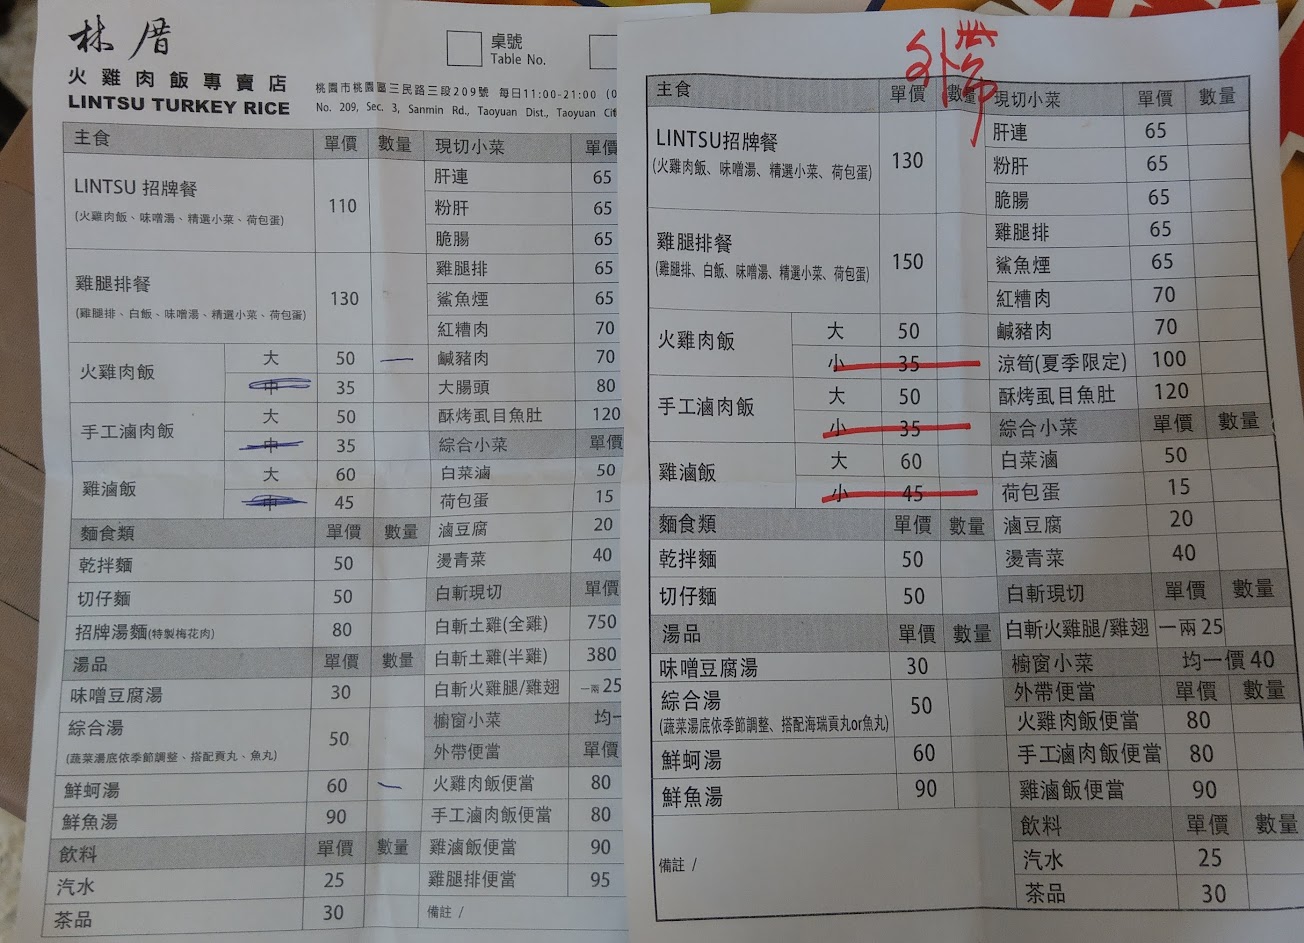 林厝
火雞肉飯專賣店
LINTSU TURKEY RICE
桌號
Table No.
桃園市桃園區三民路三段209號 每日11:00-21:00 (0
No. 209, Sec. 3, Sanmin Rd., Taoyuan Dist., Taoyuan Cit
主食 單價 數量
LINTSU 招牌餐 110
(火雞肉飯、味噌湯、精選小菜、荷包蛋)
雞腿排餐 130
(雞腿排、白飯、味噌湯、精選小菜、荷包蛋)
火雞肉飯 大 50 一
中 35
手工滷肉飯 大 50
中 35
雞滷飯 大 60
中 45
麵食類 單價 數量
乾拌麵 50
切仔麵 50
招牌湯麵(特製梅花肉) 80
湯品 單價 數量
味噌豆腐湯 30
綜合湯 50
(蔬菜湯底依季節調整、搭配貢丸、魚丸)
鮮蚵湯 60 一
鮮魚湯 90
飲料 單價 數量
汽水 25
茶品 30
現切小菜 單價
肝連 65
粉肝 65
脆腸 65
雞腿排 65
鯊魚煙 65
紅糟肉 70
鹹豬肉 70
大腸頭 80
酥烤虱目魚肚 120
綜合小菜 單價
白菜滷 50
荷包蛋 15
滷豆腐 20
燙青菜 40
白斬現切 單價
白斬土雞(全雞) 750
白斬土雞(半雞) 380
白斬火雞腿/雞翅 一兩25
櫥窗小菜 均一
外帶便當 單價
火雞肉飯便當 80
手工滷肉飯便當 80
雞滷飯便當 90
雞腿排便當 95
備註 /
外帶
主食 單價 數量
LINTSU招牌餐 130
(火雞肉飯、味噌湯、精選小菜、荷包蛋)
雞腿排餐 150
(雞腿排、白飯、味噌湯、精選小菜、荷包蛋)
火雞肉飯 大 50
小 35
手工滷肉飯 大 50
小 35
雞滷飯 大 60
小 45
麵食類 單價 數量
乾拌麵 50
切仔麵 50
湯品 單價 數量
味噌豆腐湯 30
綜合湯 50
(蔬菜湯底依季節調整、搭配海瑞貢丸or魚丸)
鮮蚵湯 60
鮮魚湯 90
備註 /
現切小菜 單價 數量
肝連 65
粉肝 65
脆腸 65
雞腿排 65
鯊魚煙 65
紅糟肉 70
鹹豬肉 70
涼筍(夏季限定) 100
酥烤虱目魚肚 120
綜合小菜 單價 數量
白菜滷 50
荷包蛋 15
滷豆腐 20
燙青菜 40
白斬現切 單價 數量
白斬火雞腿/雞翅 一兩25
櫥窗小菜 均一價40
外帶便當 單價 數量
火雞肉飯便當 80
手工滷肉飯便當 80
雞滷飯便當 90
飲料 單價 數量
汽水 25
茶品 30